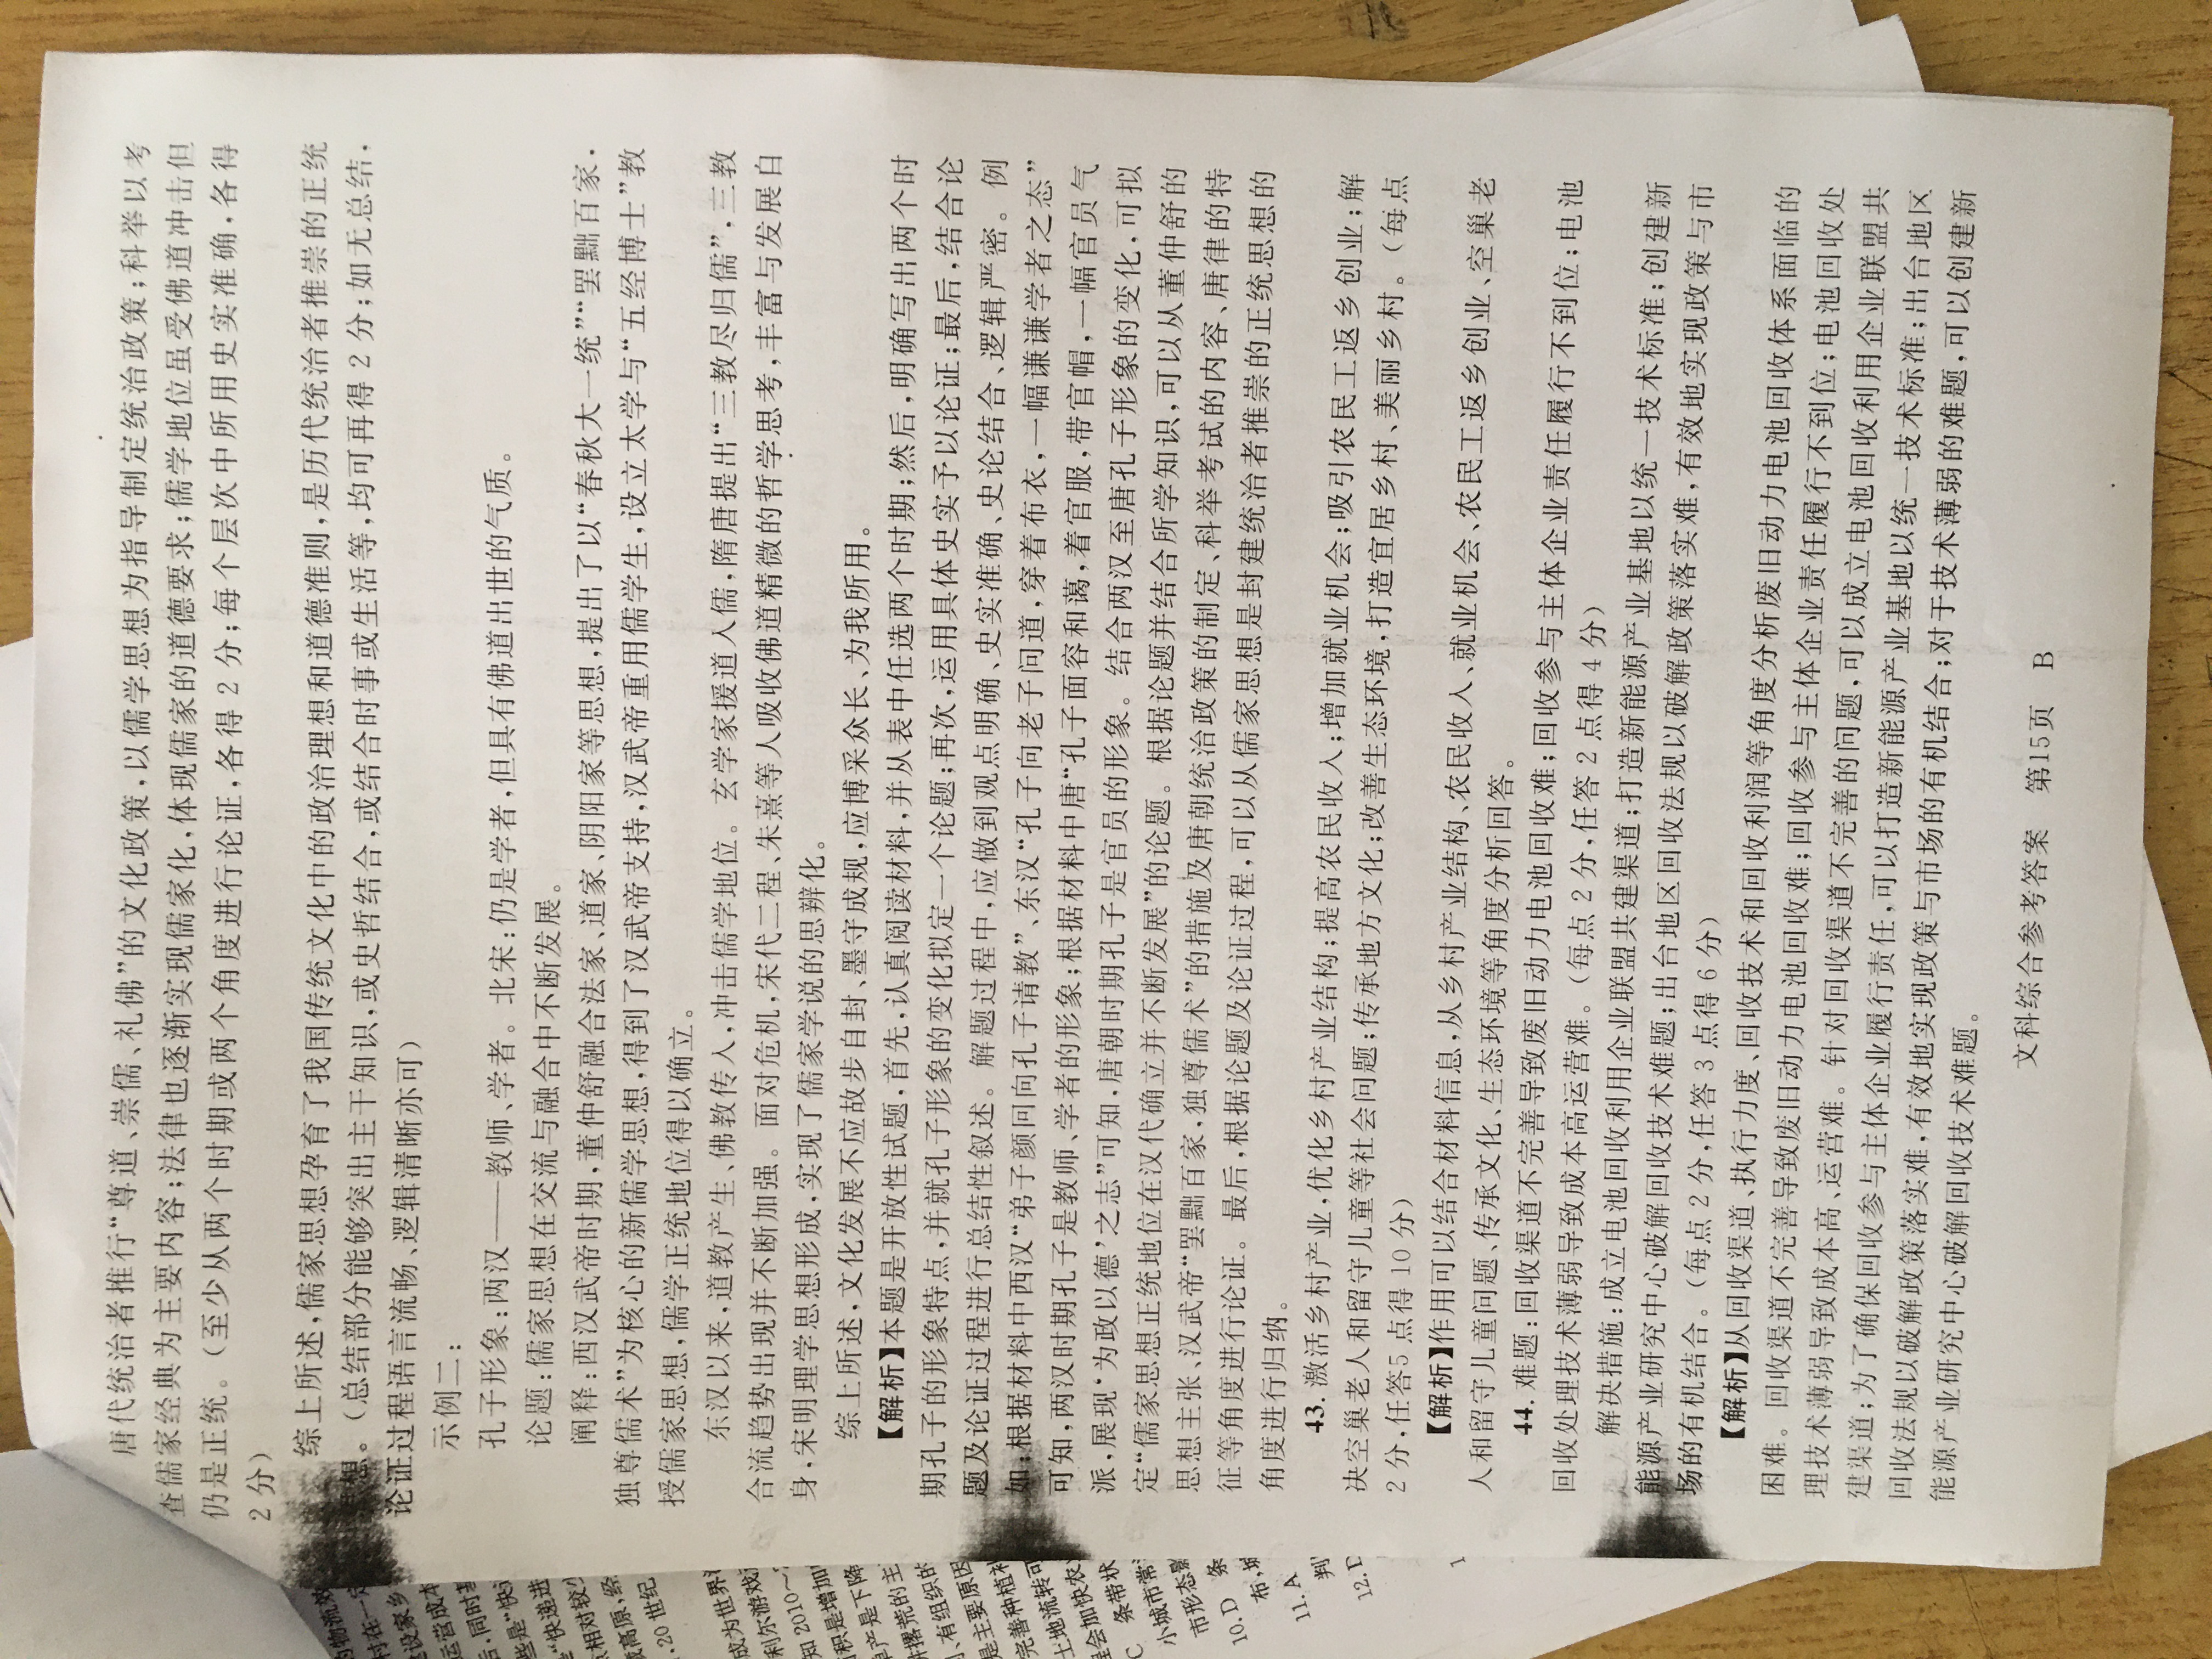 唐代统治者推行“尊道、崇儒、礼佛”的文化政策,以儒学思想为指导制定统治政策;科举以考
查儒家经典为主要内容;法律也逐渐实现儒家化,体现儒家的道德要求;儒学地位虽受佛道冲击但
仍是正统。(至少从两个时期或两个角度进行论证,各得2分;每个层次中所用史实准确,各得
2分)
综上所述,儒家思想孕育了我国传统文化中的政治理想和道德准则,是历代统治者推崇的正统
思想。(总结部分能够突出主干知识,或史哲结合,或结合时事或生活等,均可再得2分;如无总结,
论证过程语言流畅、逻辑清晰亦可)
示例二:
孔子形象:两汉——教师、学者。北宋:仍是学者,但具有佛道出世的气质。
论题:儒家思想在交流与融合中不断发展。
阐释:西汉武帝时期,董仲舒融合法家、道家、阴阳家等思想,提出了以“春秋大一统”“罢黜百家,
独尊儒术”为核心的新儒学思想,得到了汉武帝支持,汉武帝重用儒学生,设立太学与“五经博士”教
授儒家思想,儒学正统地位得以确立。
东汉以来,道教产生、佛教传入,冲击儒学地位。玄学家援道入儒,隋唐提出“三教尽归儒”,三教
合流趋势出现并不断加强。面对危机,宋代二程、朱熹等人吸收佛道精微的哲学思考,丰富与发展自
身,宋明理学思想形成,实现了儒家学说的思辨化。
综上所述,文化发展不应故步自封、墨守成规,应博采众长、为我所用。
【解析】本题是开放性试题,首先,认真阅读材料,并从表中任选两个时期;然后,明确写出两个时
期孔子的形象特点,并就孔子形象的变化拟定一个论题;再次,运用具体史实予以论证;最后,结合论
题及论证过程进行总结性叙述。解题过程中,应做到观点明确、史实准确、史论结合、逻辑严密。例
如:根据材料中西汉“弟子颜回向孔子请教”、东汉“孔子向老子问道,穿着布衣,一幅谦谦学者之态”
可知,两汉时期孔子是教师、学者的形象;根据材料中唐“孔子面容和蔼,着官服,带官帽,一幅官员气
派,展现‘为政以德’之志”可知,唐朝时期孔子是官员的形象。结合两汉至唐孔子形象的变化,可拟
定“儒家思想正统地位在汉代确立并不断发展”的论题。根据论题并结合所学知识,可以从董仲舒的
思想主张、汉武帝“罢黜百家,独尊儒术”的措施及唐朝统治政策的制定、科举考试的内容、唐律的特
征等角度进行论证。最后,根据论题及论证过程,可以从儒家思想是封建统治者推崇的正统思想的
角度进行归纳。
43. 激活乡村产业,优化乡村产业结构;提高农民收入;增加就业机会;吸引农民工返乡创业;解
决空巢老人和留守儿童等社会问题;传承地方文化;改善生态环境,打造宜居乡村、美丽乡村。(每点
2分,任答5点得10分)
【解析】作用可以结合材料信息,从乡村产业结构、农民收入、就业机会、农民工返乡创业、空巢老
人和留守儿童问题、传承文化、生态环境等角度分析回答。
44. 难题:回收渠道不完善导致废旧动力电池回收难;回收参与主体企业责任履行不到位;电池
回收处理技术薄弱导致成本高运营难。(每点2分,任答2点得4分)
解决措施:成立电池回收利用企业联盟共建渠道;打造新能源产业基地以统一技术标准;创建新
能源产业研究中心破解回收技术难题;出台地区回收法规以破解政策落实难,有效地实现政策与市
场的有机结合。(每点2分,任答3点得6分)
【解析】从回收渠道、执行力度、回收技术和回收利润等角度分析废旧动力电池回收体系面临的
困难。回收渠道不完善导致废旧动力电池回收难;回收参与主体企业责任履行不到位;电池回收处
理技术薄弱导致成本高、运营难。针对回收渠道不完善的问题,可以成立电池回收利用企业联盟共
建渠道;为了确保回收参与主体企业履行责任,可以打造新能源产业基地以统一技术标准;出台地区
回收法规以破解政策落实难,有效地实现政策与市场的有机结合;对于技术薄弱的难题,可以创建新
能源产业研究中心破解回收技术难题。
文科综合参考答案 第15页 B
10.D
11.A
12.D